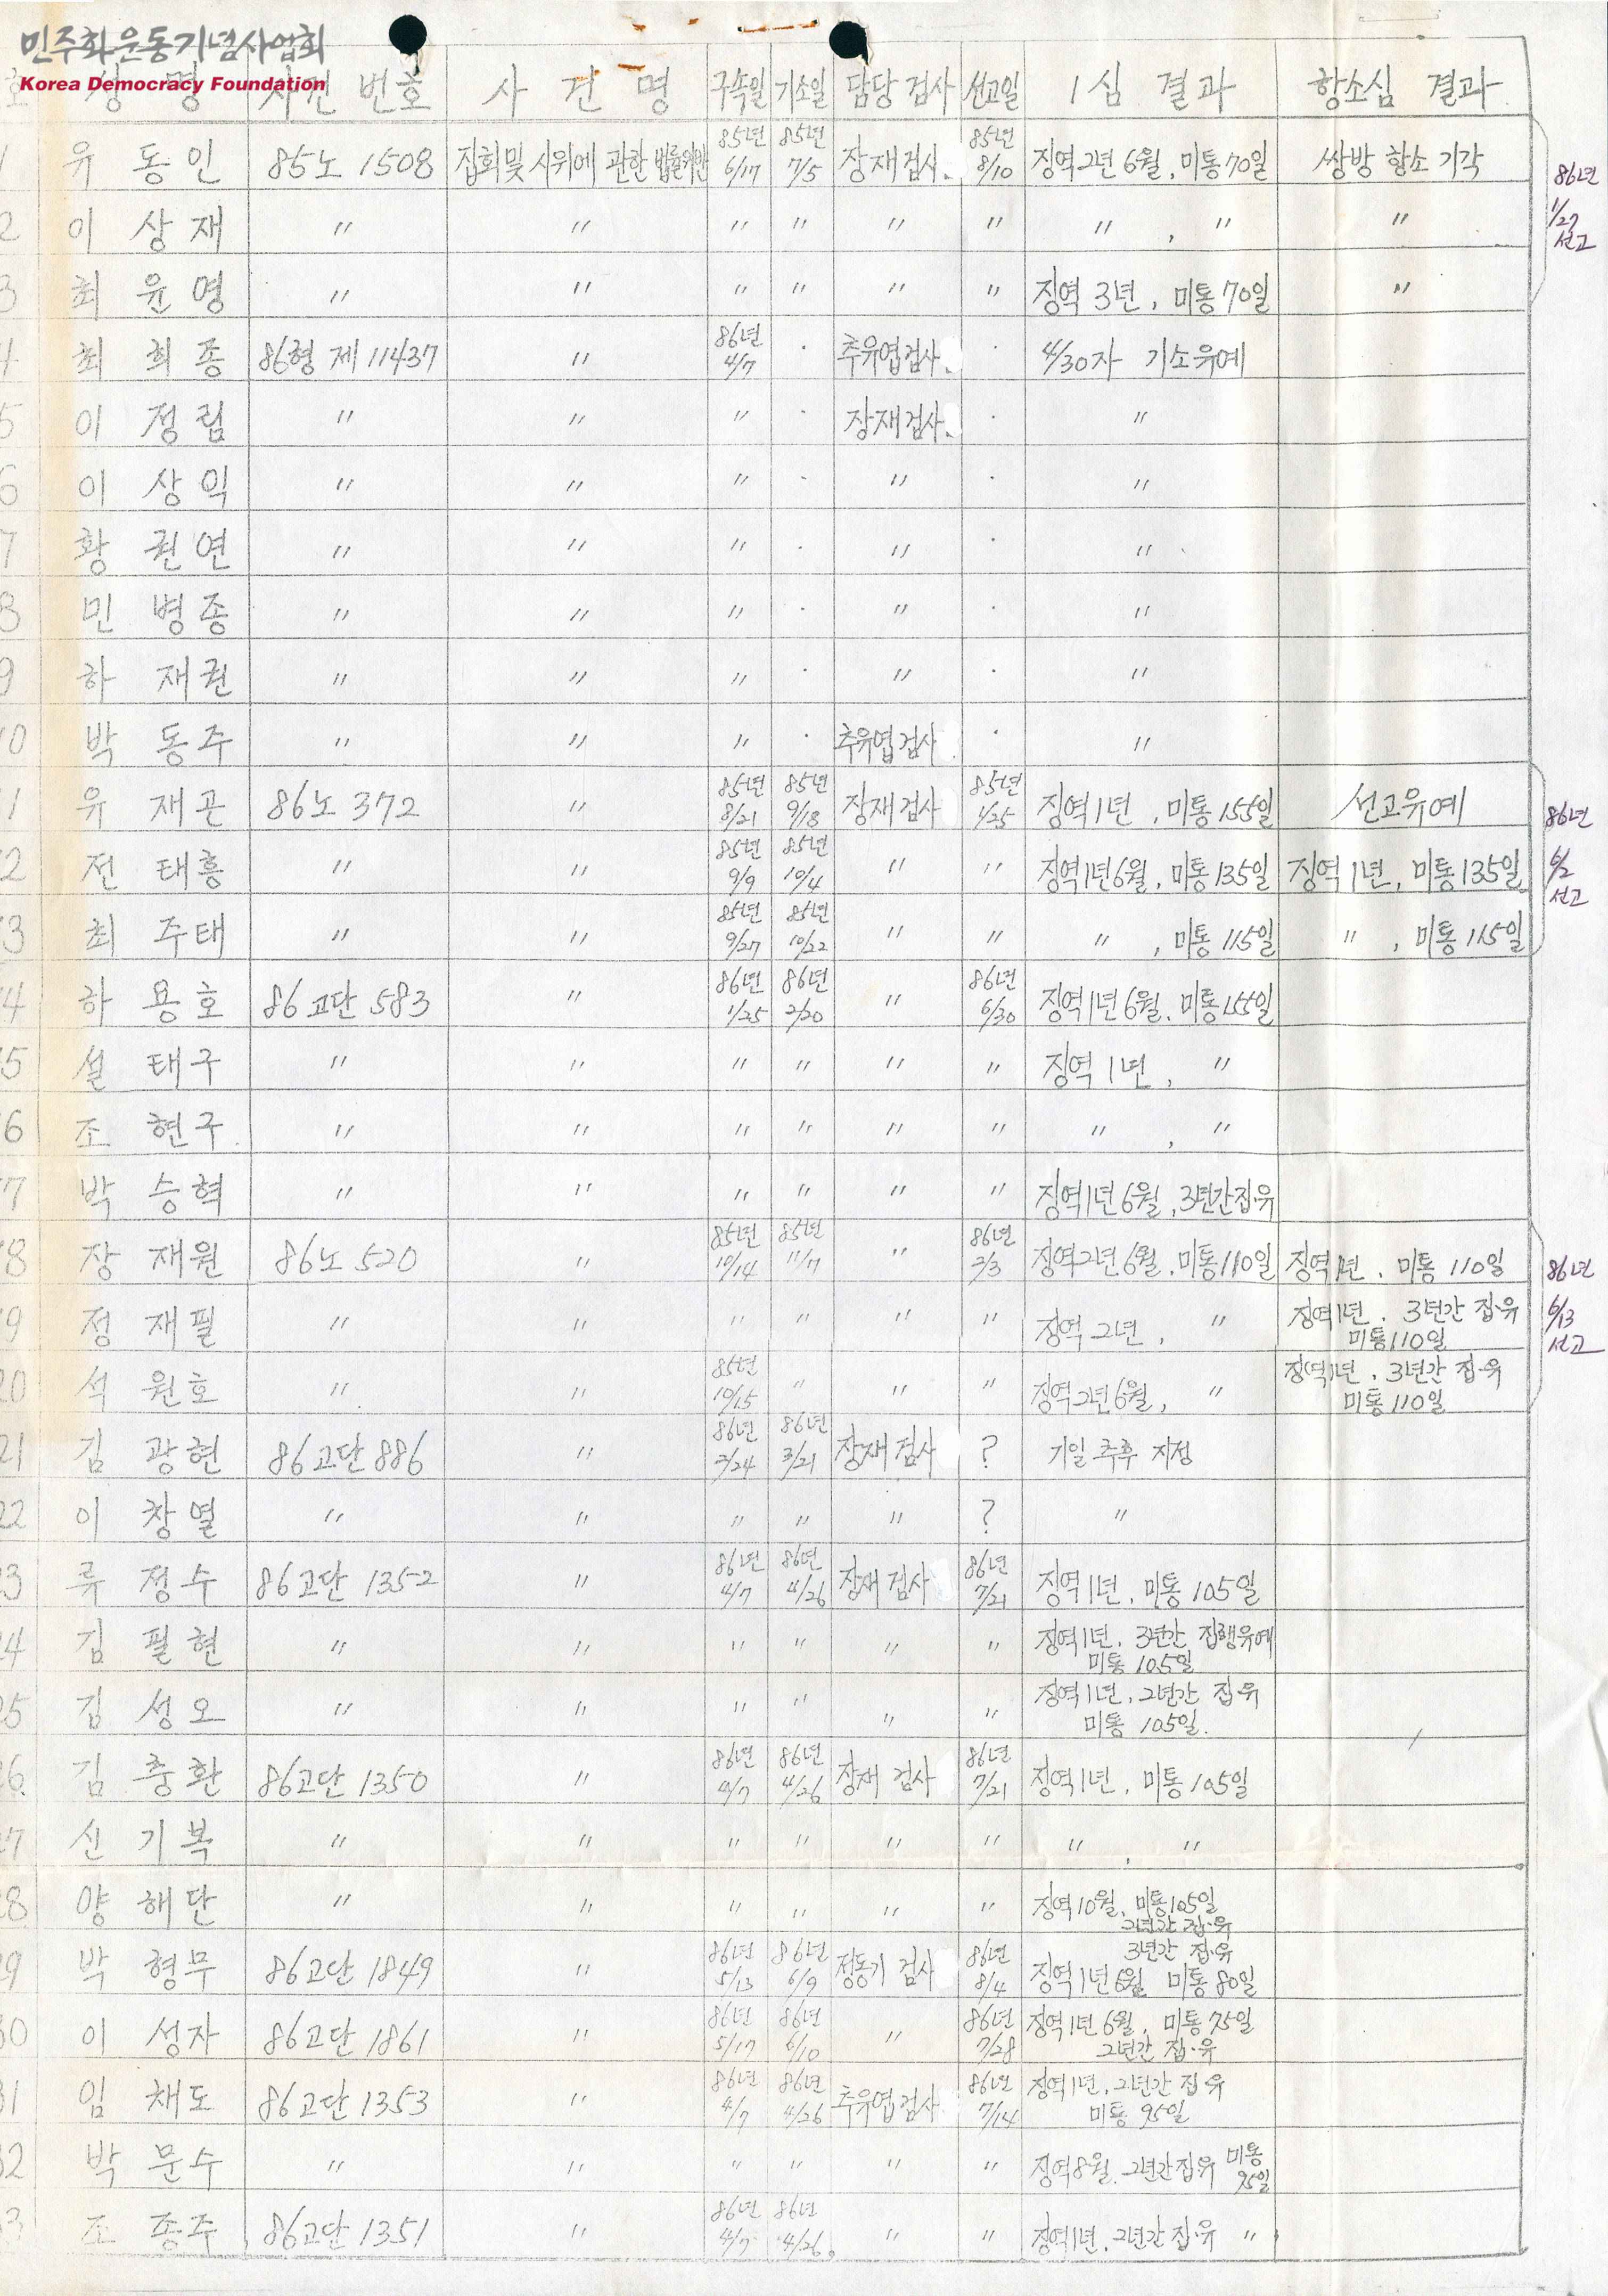 민주화운동기념사업회
Korea Democracy Foundation
성 명 사건 번호 사 건 명 구속일 기소일 담당 검사 선고일 1심 결과 항소심 결과
1 유동인 85노 1508 집회및 시위에 관한 법률위반 85년 6/17 85년 7/5 장재검사 85년 8/10 징역2년 6월, 미통70일 쌍방 항소 기각
2 이상재 〃 〃 〃 〃 〃 〃 〃 , 〃 〃
3 최윤영 〃 〃 〃 〃 〃 〃 징역 3년, 미통70일 〃
86년 1/27 선고
4 최희종 86형 제11437 〃 86년 4/7 · 추유엽검사 · 4/30자 기소유예
5 이정림 〃 〃 〃 · 장재검사 · 〃
6 이상익 〃 〃 〃 · 〃 · 〃
7 황권연 〃 〃 〃 · 〃 · 〃
8 민병종 〃 〃 〃 · 〃 · 〃
9 하재권 〃 〃 〃 · 〃 · 〃
10 박동주 〃 〃 〃 · 추유엽검사 · 〃
11 유재곤 86노 372 〃 85년 8/21 85년 9/18 장재검사 85년 1/25 징역1년, 미통155일 선고유예
12 전태흥 〃 〃 85년 9/9 85년 10/4 〃 〃 징역1년6월, 미통135일 징역1년, 미통135일
13 최주태 〃 〃 85년 9/27 85년 10/22 〃 〃 〃 , 미통115일 〃 , 미통115일
86년 6/2 선고
14 하용호 86고단 583 〃 86년 1/25 86년 2/20 〃 86년 6/30 징역1년6월, 미통155일
15 설태구 〃 〃 〃 〃 〃 〃 징역1년, 〃
16 조현구 〃 〃 〃 〃 〃 〃 〃 , 〃
17 박승혁 〃 〃 〃 〃 〃 〃 징역1년6월, 3년간집유
18 장재원 86노 520 〃 85년 10/14 85년 11/7 〃 86년 2/3 징역2년6월, 미통110일 징역1년, 미통110일
19 정재필 〃 〃 〃 〃 〃 〃 징역2년, 〃 징역1년, 3년간 집·유 미통110일
20 석원호 〃 〃 85년 10/15 〃 〃 〃 징역2년6월, 〃 징역1년, 3년간 집·유 미통110일
86년 6/13 선고
21 김광현 86고단886 〃 86년 2/24 86년 3/21 장재검사 ? 기일 추후 지정
22 이창열 〃 〃 〃 〃 〃 ? 〃
23 류정수 86고단 1352 〃 86년 4/7 86년 4/26 장재검사 86년 7/21 징역1년, 미통105일
24 김필현 〃 〃 〃 〃 〃 〃 징역1년, 3년간 집행유예 미통105일
25 김성오 〃 〃 〃 〃 〃 〃 징역1년, 2년간 집·유 미통 105일.
26. 김충환 86고단 1350 〃 86년 4/7 86년 4/26 장재 검사 86년 7/21 징역1년, 미통105일
27 신기복 〃 〃 〃 〃 〃 〃 〃 , 〃
28 양해단 〃 〃 〃 〃 〃 〃 징역10월, 미통105일 2년간 집·유
29 박형무 86고단 1849 〃 86년 5/13 86년 6/9 정동기 검사 86년 8/4 3년간 집·유 징역1년6월 미통80일
30 이성자 86고단 1861 〃 86년 5/17 86년 6/10 〃 86년 7/28 징역1년6월, 미통75일 2년간 집·유
31 임채도 86고단1353 〃 86년 4/7 86년 4/26 추유엽검사 86년 7/14 징역1년, 2년간 집유 미통 95일
32 박문수 〃 〃 〃 〃 〃 〃 징역8월, 2년간집유 미통 95일
33 조종주 86고단1351 〃 86년 4/7 86년 4/26 〃 〃 징역1년, 2년간집·유 〃